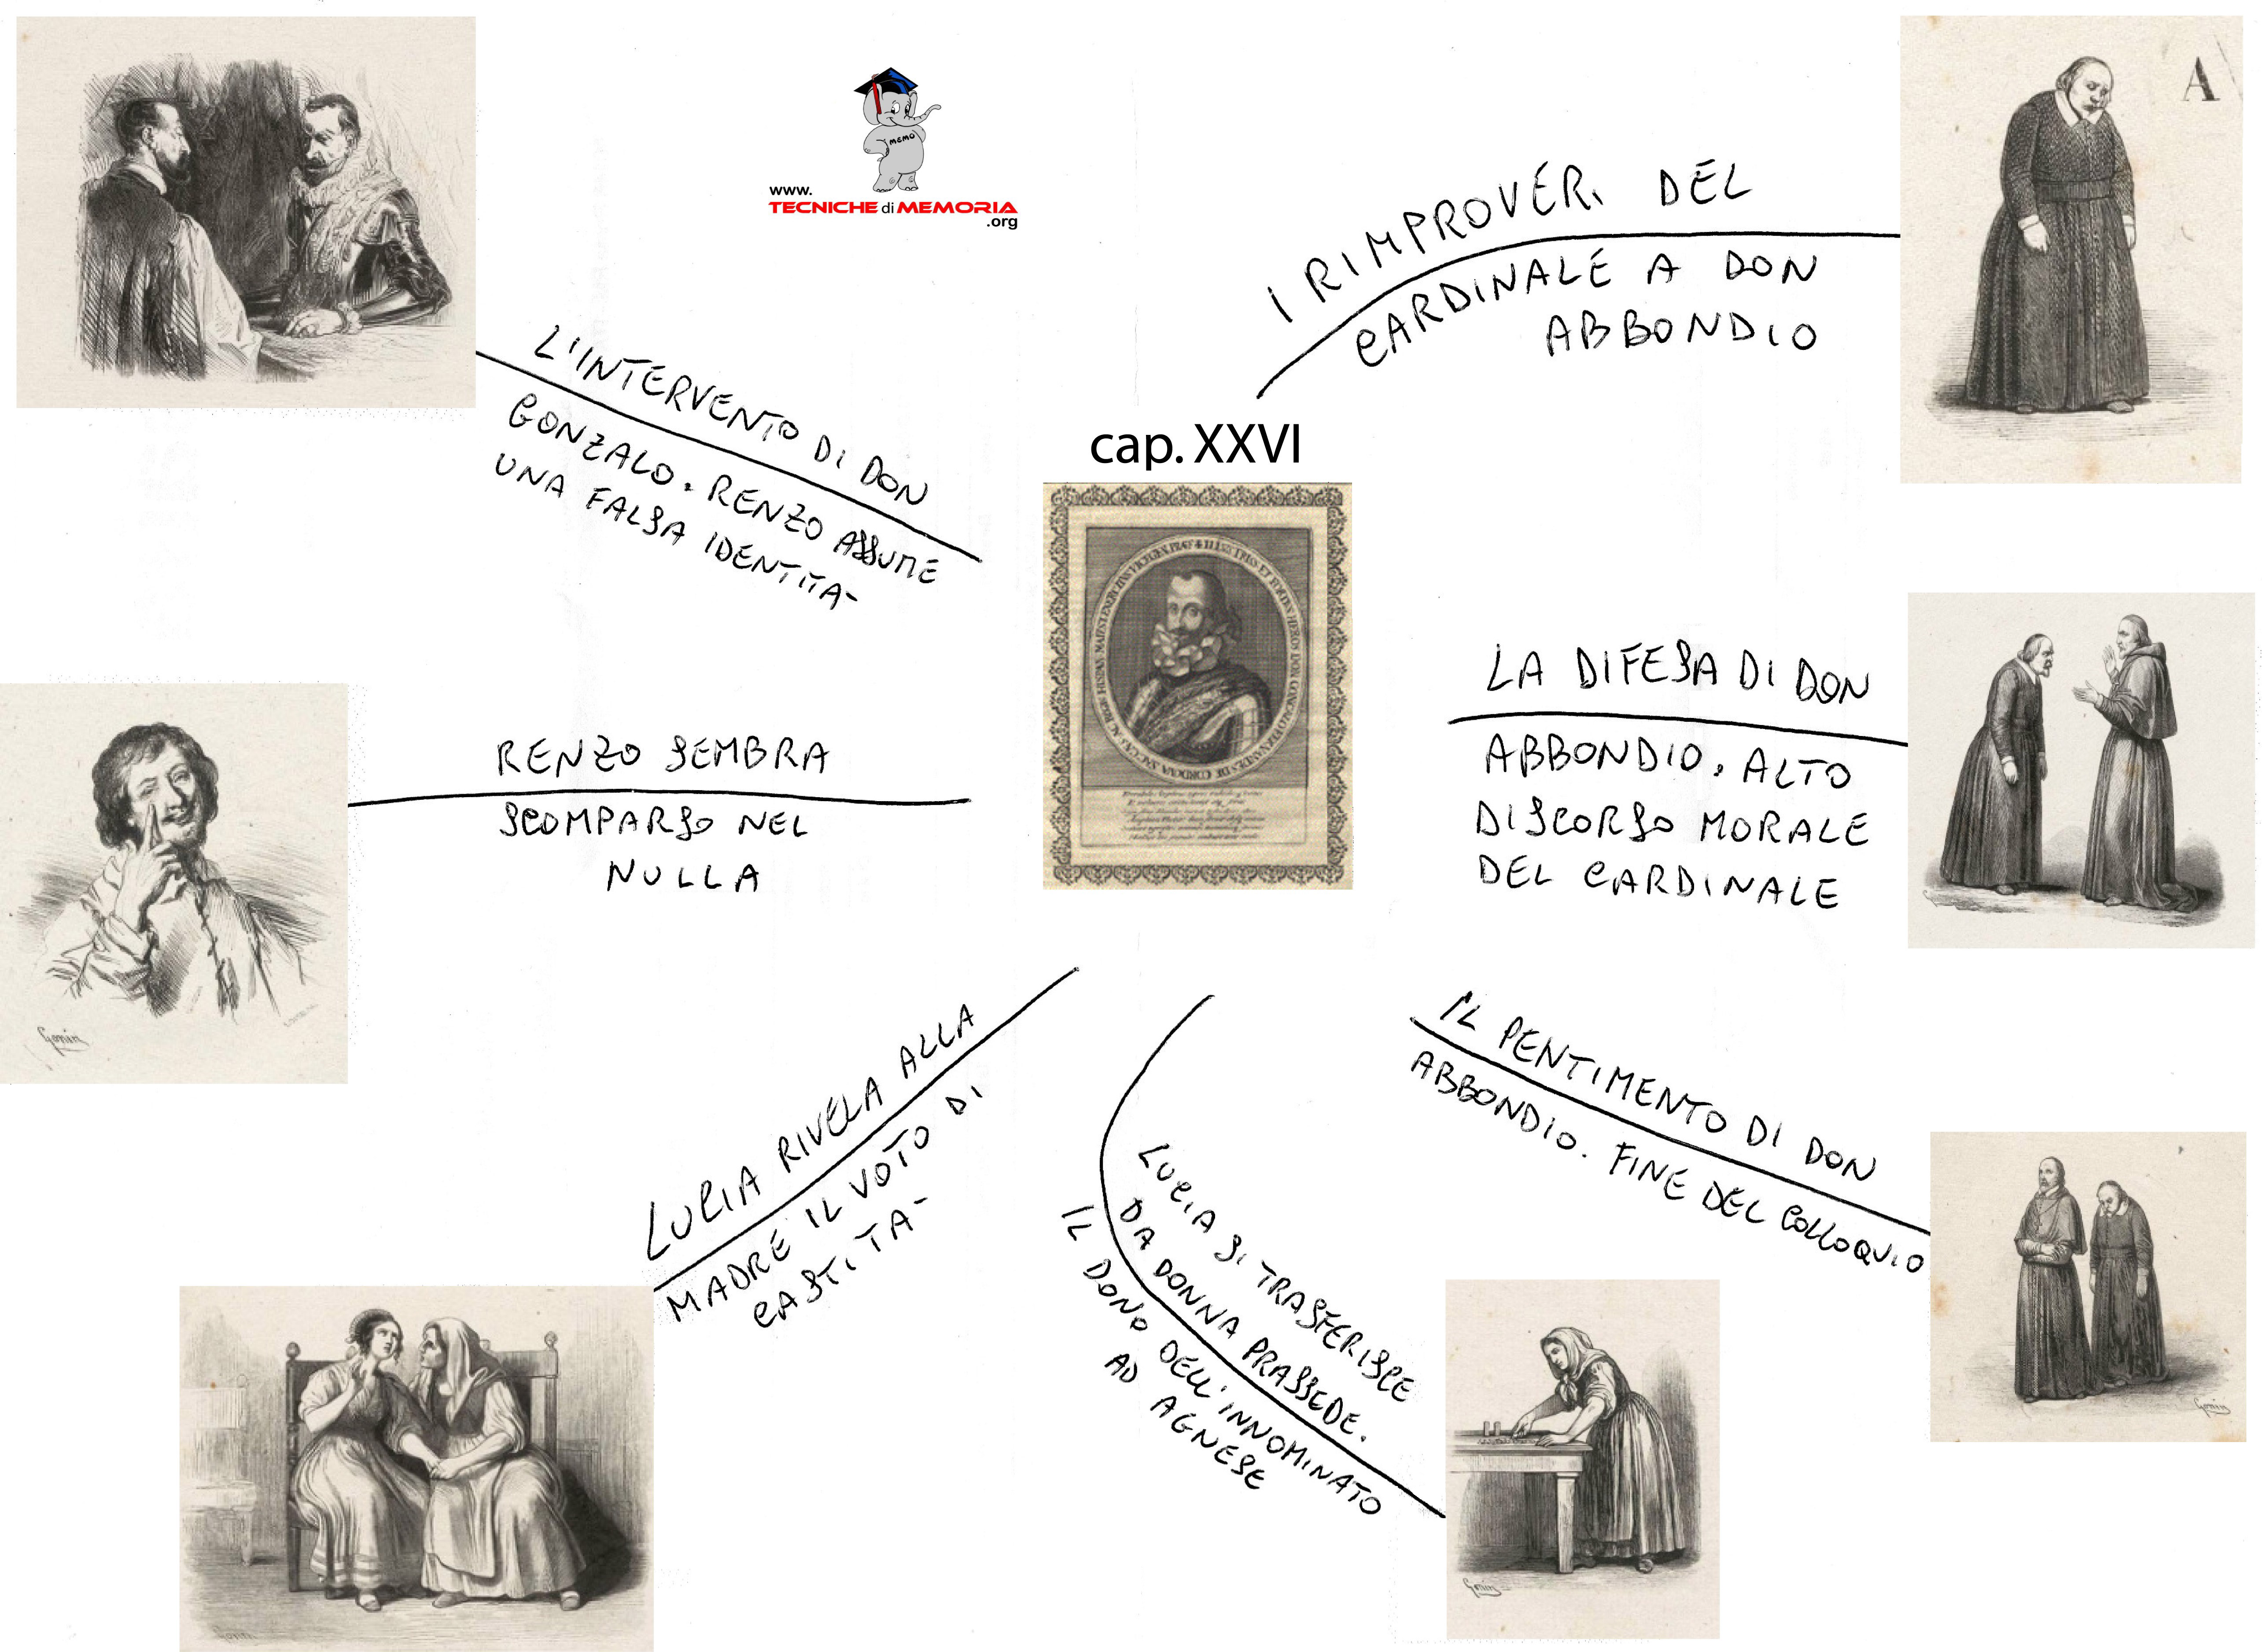 www.
TECNICHE di MEMORIA
.org
MEMO
A
cap. XXVI
I RIMPROVERI DEL
CARDINALE A DON
ABBONDIO
LA DIFESA DI DON
ABBONDIO. ALTO
DISCORSO MORALE
DEL CARDINALE
IL PENTIMENTO DI DON
ABBONDIO. FINE DEL COLLOQUIO
LUCIA SI TRASFERISCE
DA DONNA PRASSEDE.
IL DONO DELL'INNOMINATO
AD AGNESE
LUCIA RIVELA ALLA
MADRE IL VOTO DI
CASTITA-
RENZO SEMBRA
SCOMPARSO NEL
NULLA
L'INTERVENTO DI DON
GONZALO. RENZO ASSUME
UNA FALSA IDENTITA-
Gonin
Gonin
Gonin
Gonin